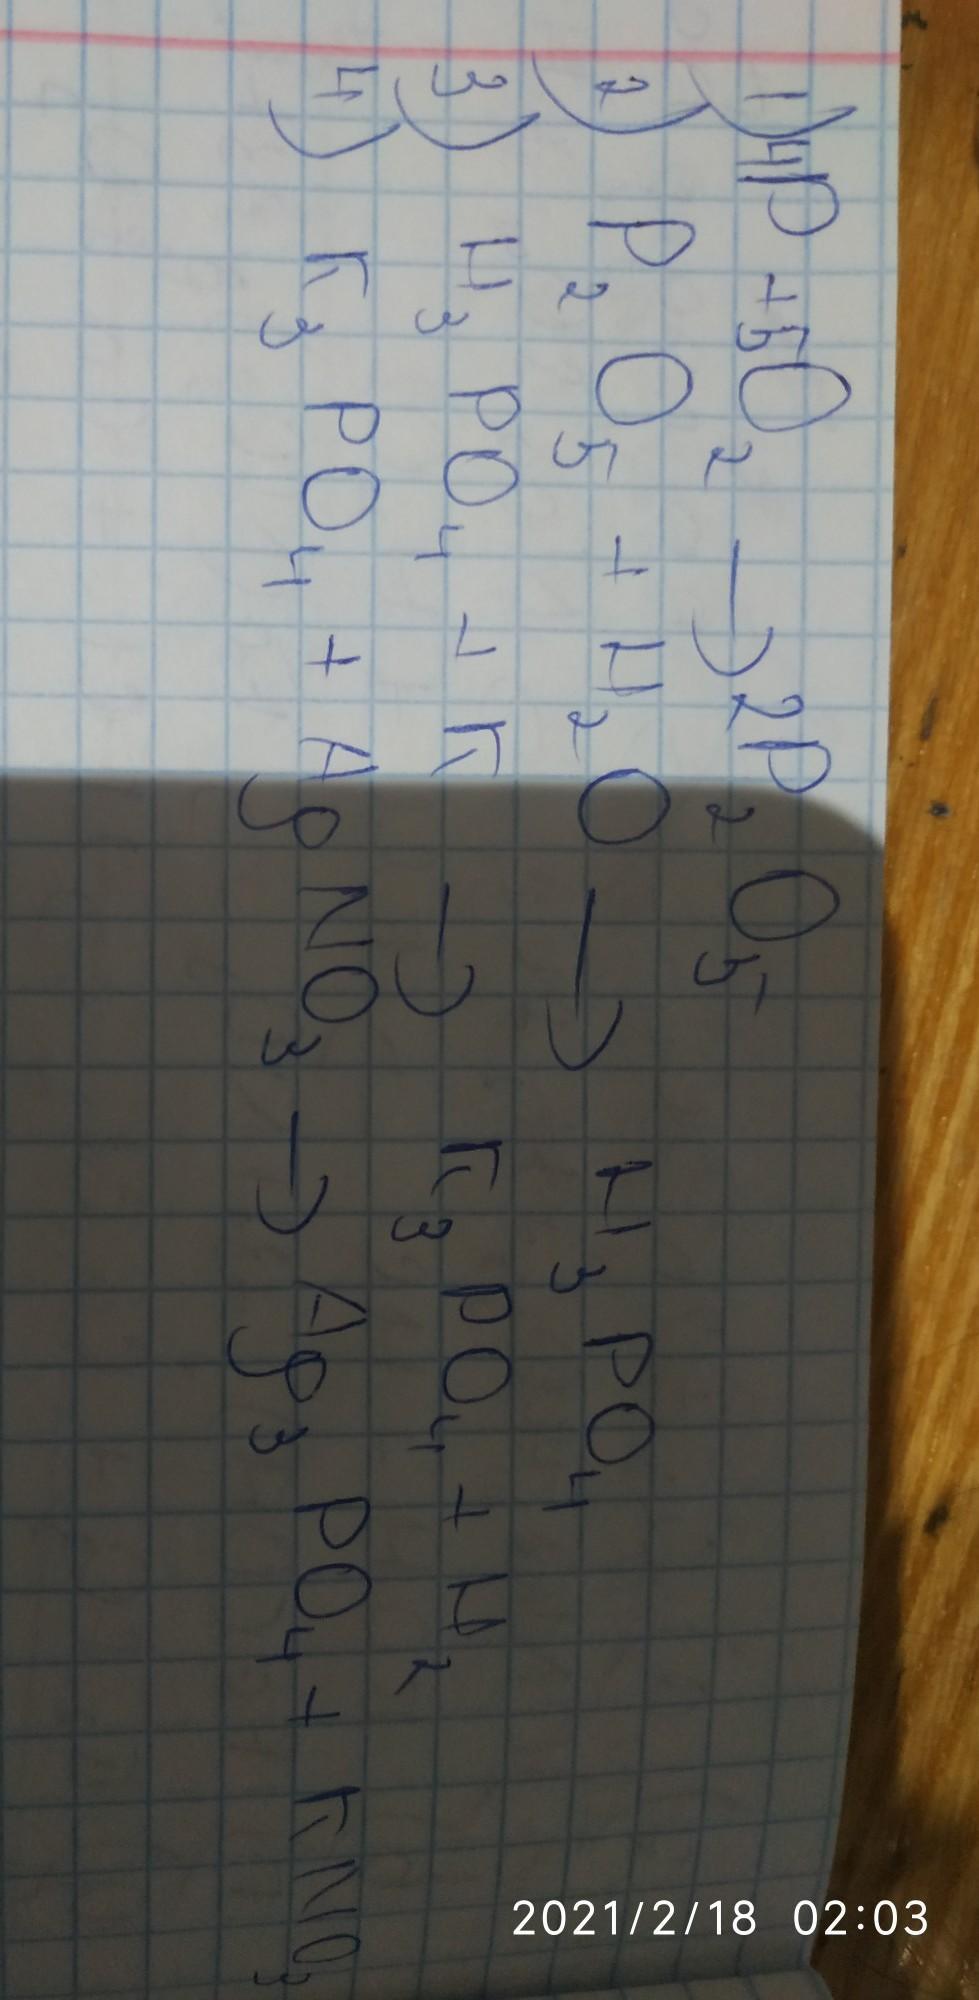 1) 4P + 5O₂ → 2P₂O₅
2) P₂O₅ + H₂O → H₃PO₄
3) H₃PO₄ + K → K₃PO₄ + H₂
4) K₃PO₄ + AgNO₃ → Ag₃PO₄ + KNO₃
2021/2/18 02:03